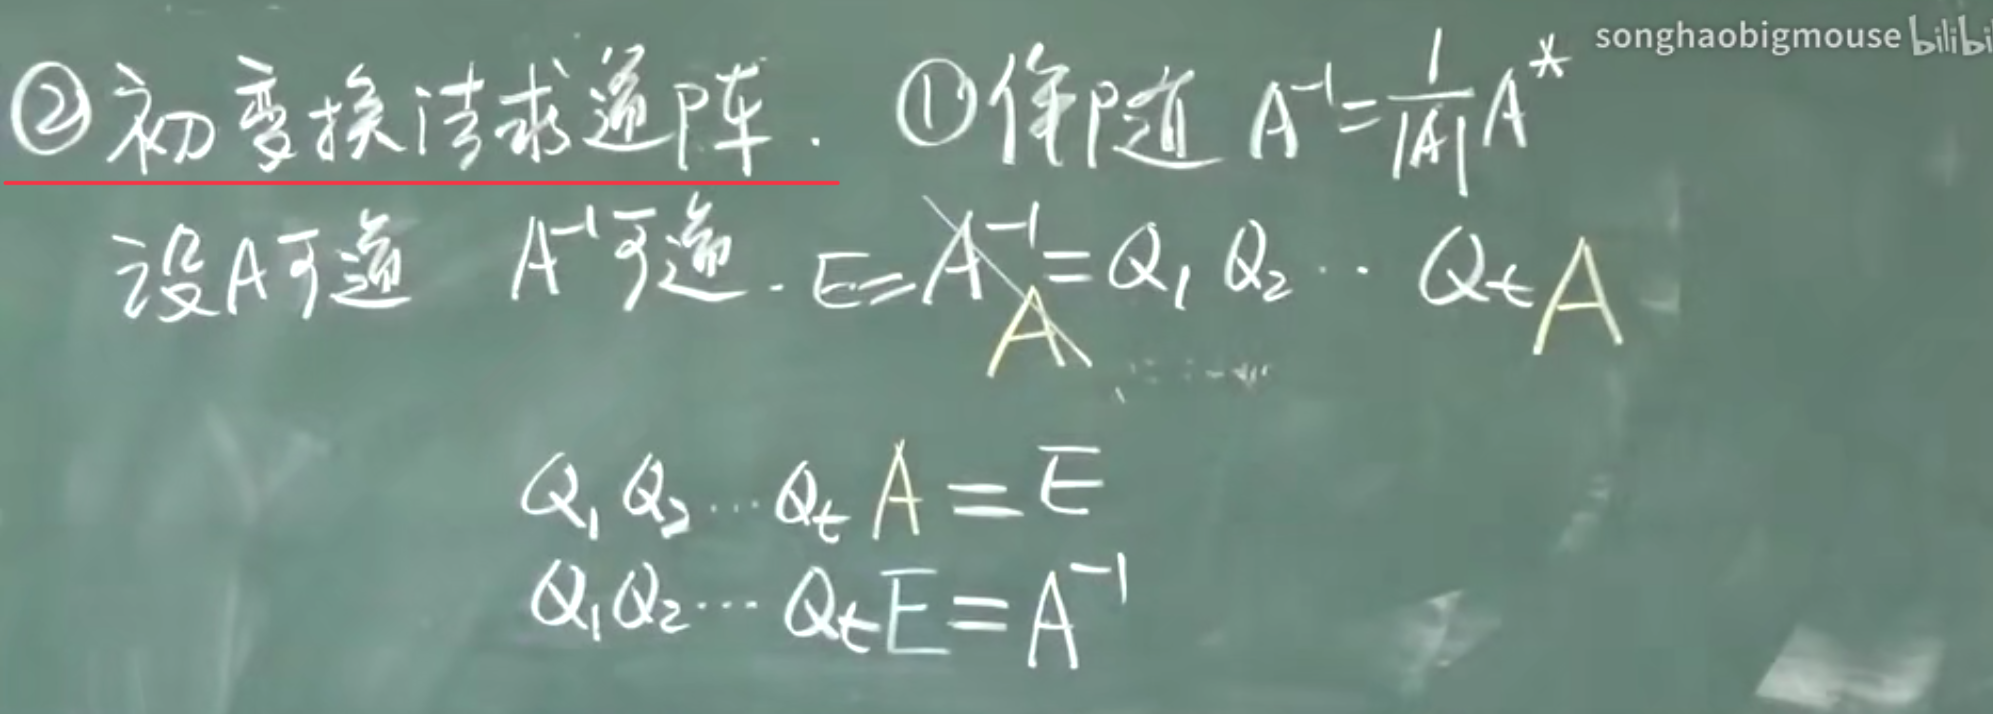 songhaobigmouse bilibi
②初变换法求逆阵. ①伴随 A⁻¹=1/|A| A*
设A可逆 A⁻¹可逆. E=A⁻¹A=Q₁ Q₂ ‥ Qₜ A
Q₁ Q₂ … Qₜ A = E
Q₁ Q₂ … Qₜ E = A⁻¹